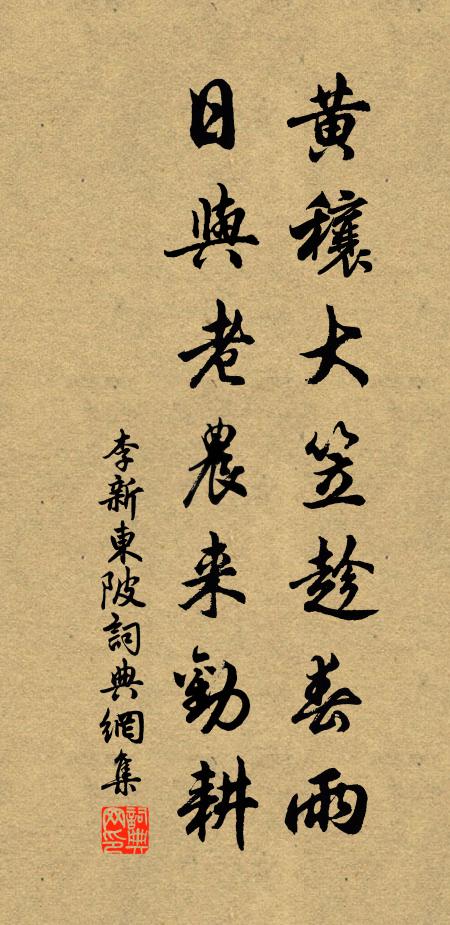 黃穰大笠趁春雨
日與老農来勸耕
李新東陂詞典網集
詞典网印